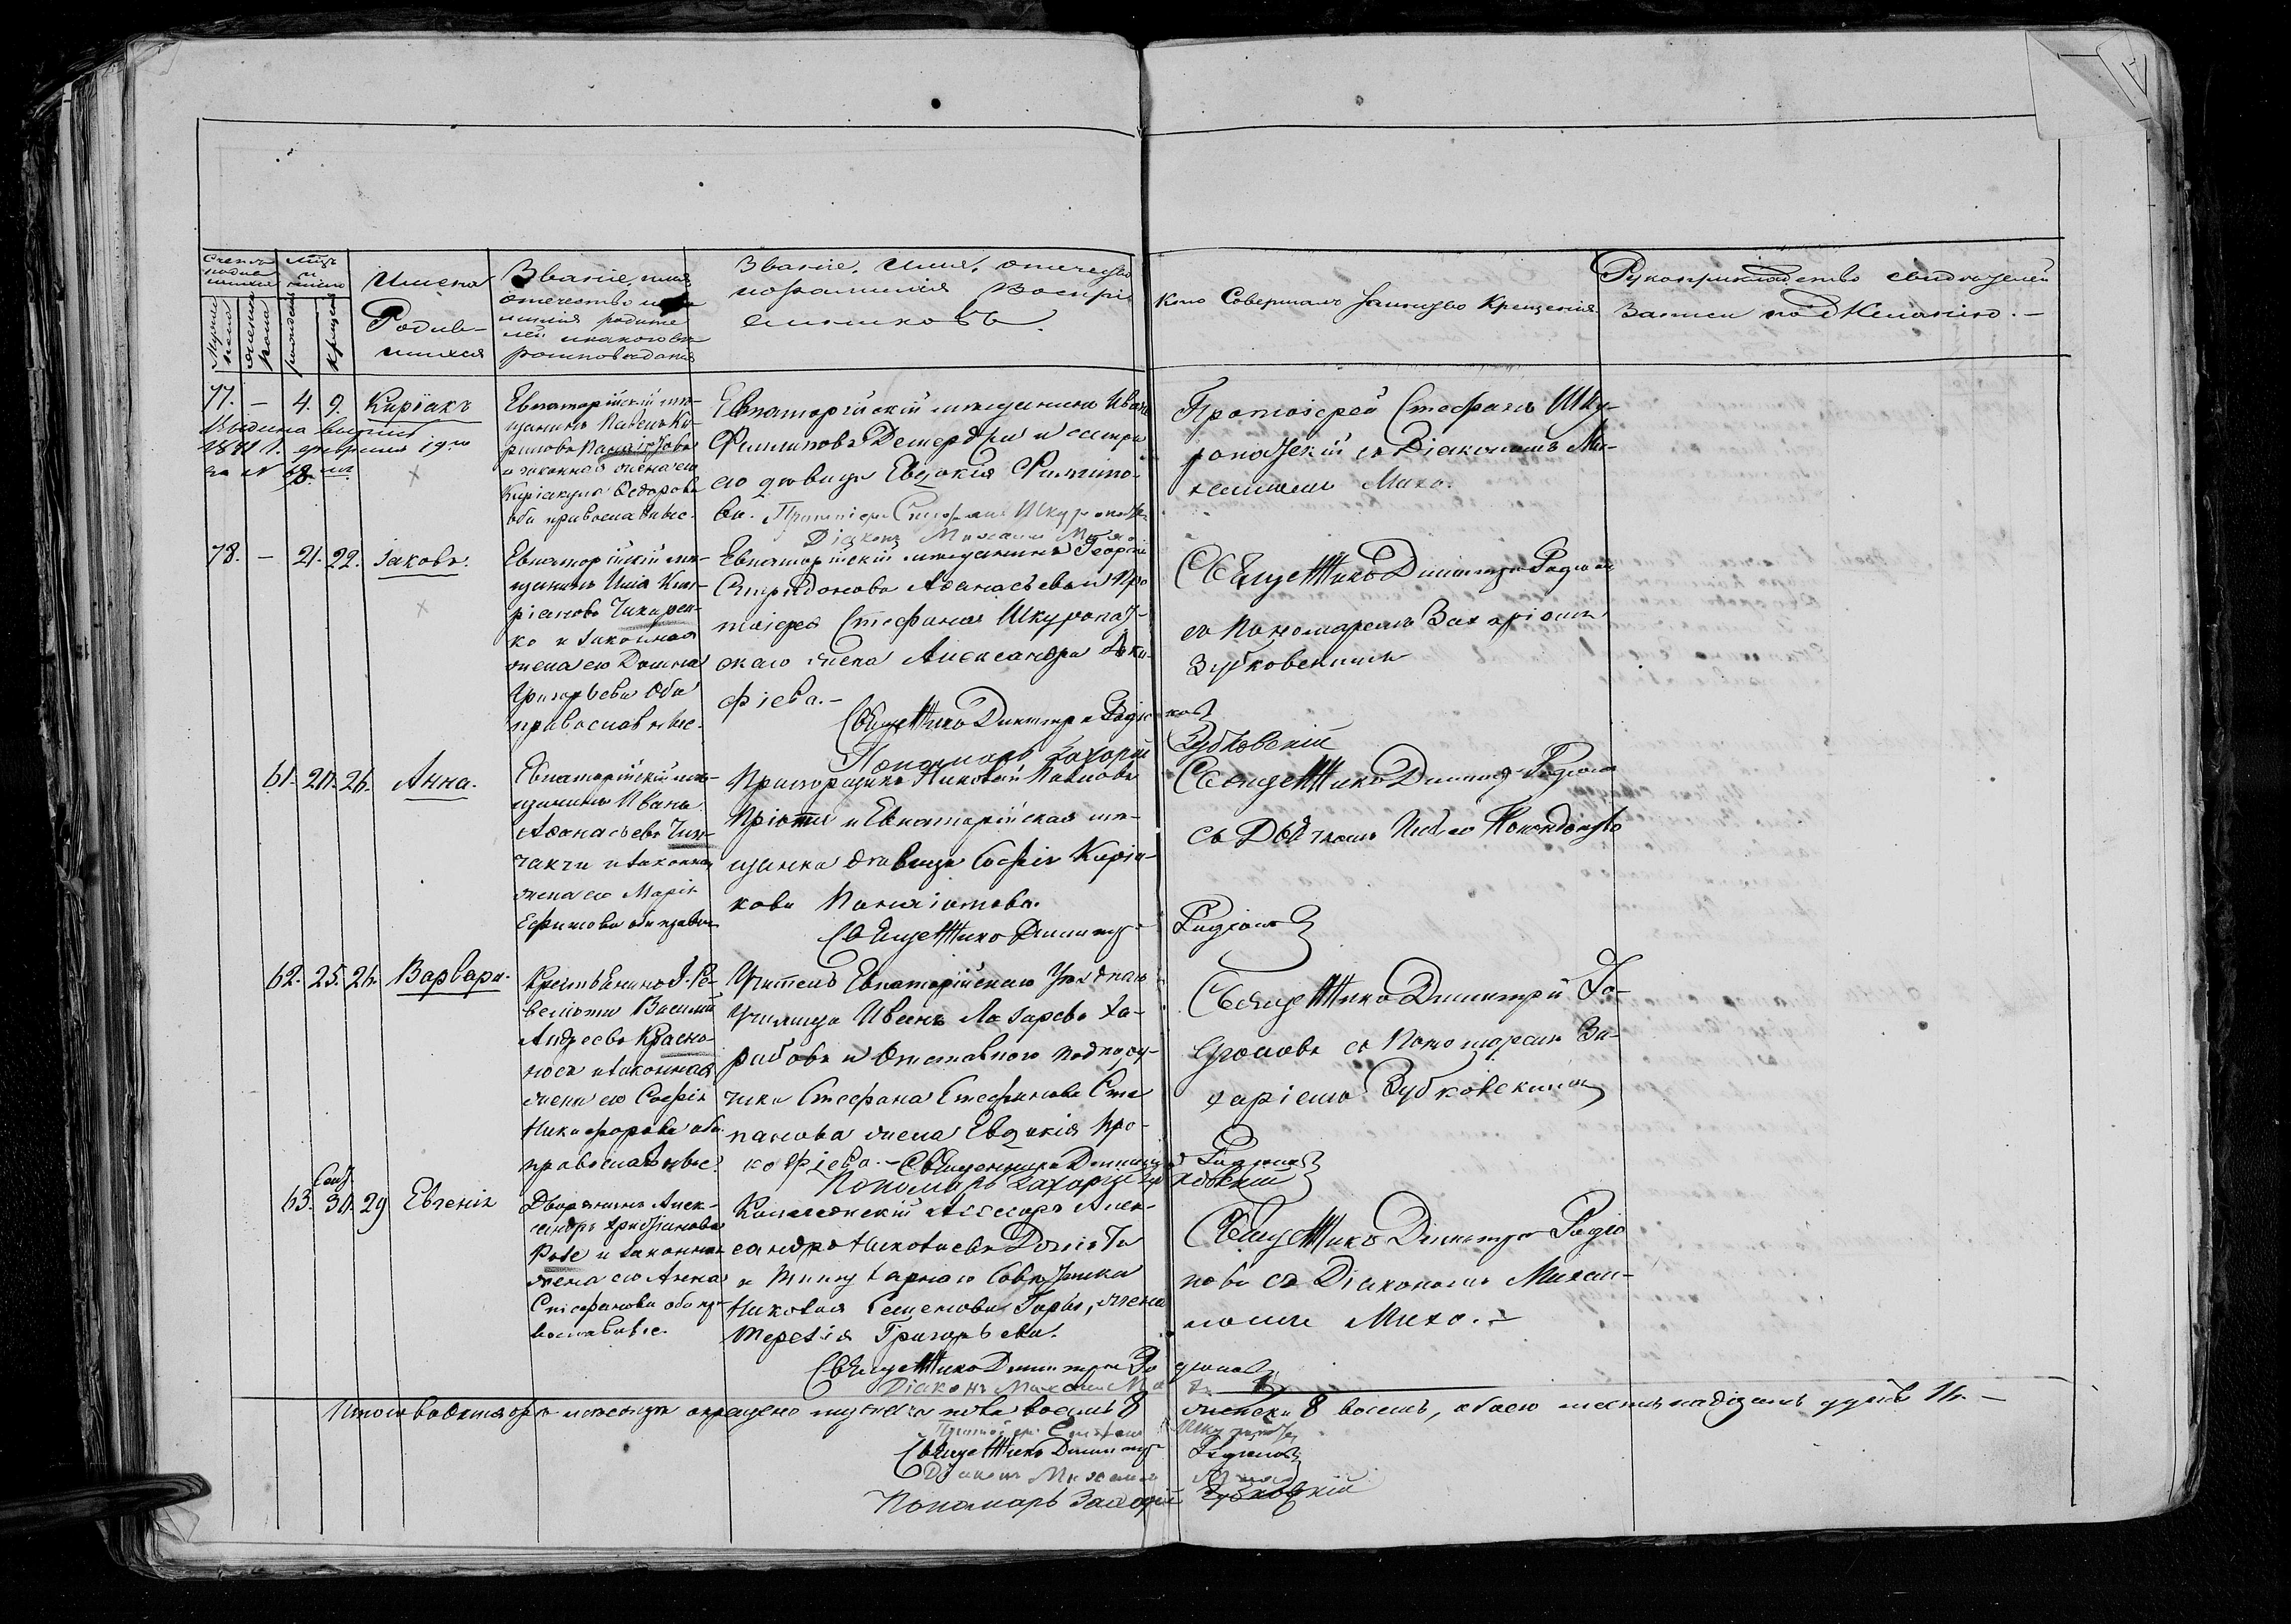 Счетъ родив шихся
Мѣсяцъ и число
Мужеска пола
Женска пола
рожденія
крещенія
Имена
Родив-
шихся
Званіе, имя
отечество и фа
милія родите
лей и какого вѣ
роисповѣданія
Званіе, имя, отечество
и фамилія воспрі
емниковъ.
Кто совершалъ таинство крещенія
Рукоприкладство свидѣтелей
записи по желанію.-
77. — 4. 9. Киріакъ
1881 г. февраля 19го
за № 68.
Евпаторійскій мѣ-
щанинъ Павелъ Ки-
ріаковъ
и законная жена его
Киріакула Федорова
оба православные.
Евпаторійскій мѣщанинъ Иванъ
Филипповъ и сестра
его дѣвица Евдокія Филиппо-
ва. Протоіерей Стефанъ Шкуропатскій
Діаконъ Михаилъ Михо
Протоіерей Стефанъ Шку-
ропатскій съ Діакономъ Ми-
хаиломъ Михо.
78. — 21. 22. Іаковъ.
Евпаторійскій мѣ-
щанинъ Илія Кип-
ріановъ Чикирен-
ко и законная
жена его Домна
Григорьева оба
православные.
Евпаторійскій мѣщанинъ Георгій
Спиридоновъ Аѳанасьевъ и Про
тоіерея Стефана Шкуропат-
скаго жена Александра Про-
фіева.-
Священникъ Димитрій Родіоновъ
Пономарь Захарій Зубковскій
Священникъ Димитрій Родіоновъ
съ Пономаремъ Захаріемъ
Зубковскимъ
61. 20. 26. Анна.
Евпаторійскій мѣ-
щанинъ Иванъ
Аѳанасьевъ Чин-
чакчи и законная
жена его Марія
Ефимова оба правос
Прапорщикъ Николай Павловъ
и Евпаторійская мѣ-
щанка дѣвица Софія Киріа-
кова Панаіотова.
Священникъ Димитрій Родіоновъ
Священникъ Димитрій Родіоновъ
съ Дьячкомъ
62. 25. 26. Варвара.
Крестьянинъ
Василій
Андреевъ Красно-
носъ и законная
жена его Софія
Никифорова оба
православные.
Учитель Евпаторійскаго Уѣзднаго
Училища Иванъ Лазаревъ Ха-
рибовъ и Отставнаго подпору-
чика Стефана Стефанова Сте
панова жена Евдокія Про-
кофіева.- Священникъ Димитрій Родіоновъ
Пономарь Захарій Зубковскій
Священникъ Димитрій Ро-
діоновъ съ Пономаремъ За-
харіемъ Зубковскимъ
63. Сент. 30. 29 Евгенія
Дворянинъ Алек-
сандръ Христіановъ
Розе и законная
жена его Анна
Стефанова оба пра-
вославные.
Коллежскій Ассесоръ Алек-
сандръ Николаевъ
и Титулярнаго Совѣтника
Николая Семенова жена
Терезія Григорьева.
Священникъ Димитрій Родіоновъ
Діаконъ Михаилъ Михо
Священникъ Димитрій Родіо
новъ съ Діакономъ Михаи-
ломъ Михо.-
Итого въ октябрѣ мѣсяцѣ окрещено мужеска пола восемь 8 женска 8 восемь, обоего шестьнадцать душъ 16.—
Протоіерей Стефанъ Шкуропатскій
Священникъ Димитрій Родіоновъ
Діаконъ Михаилъ Михо
Пономарь Захарій Зубковскій